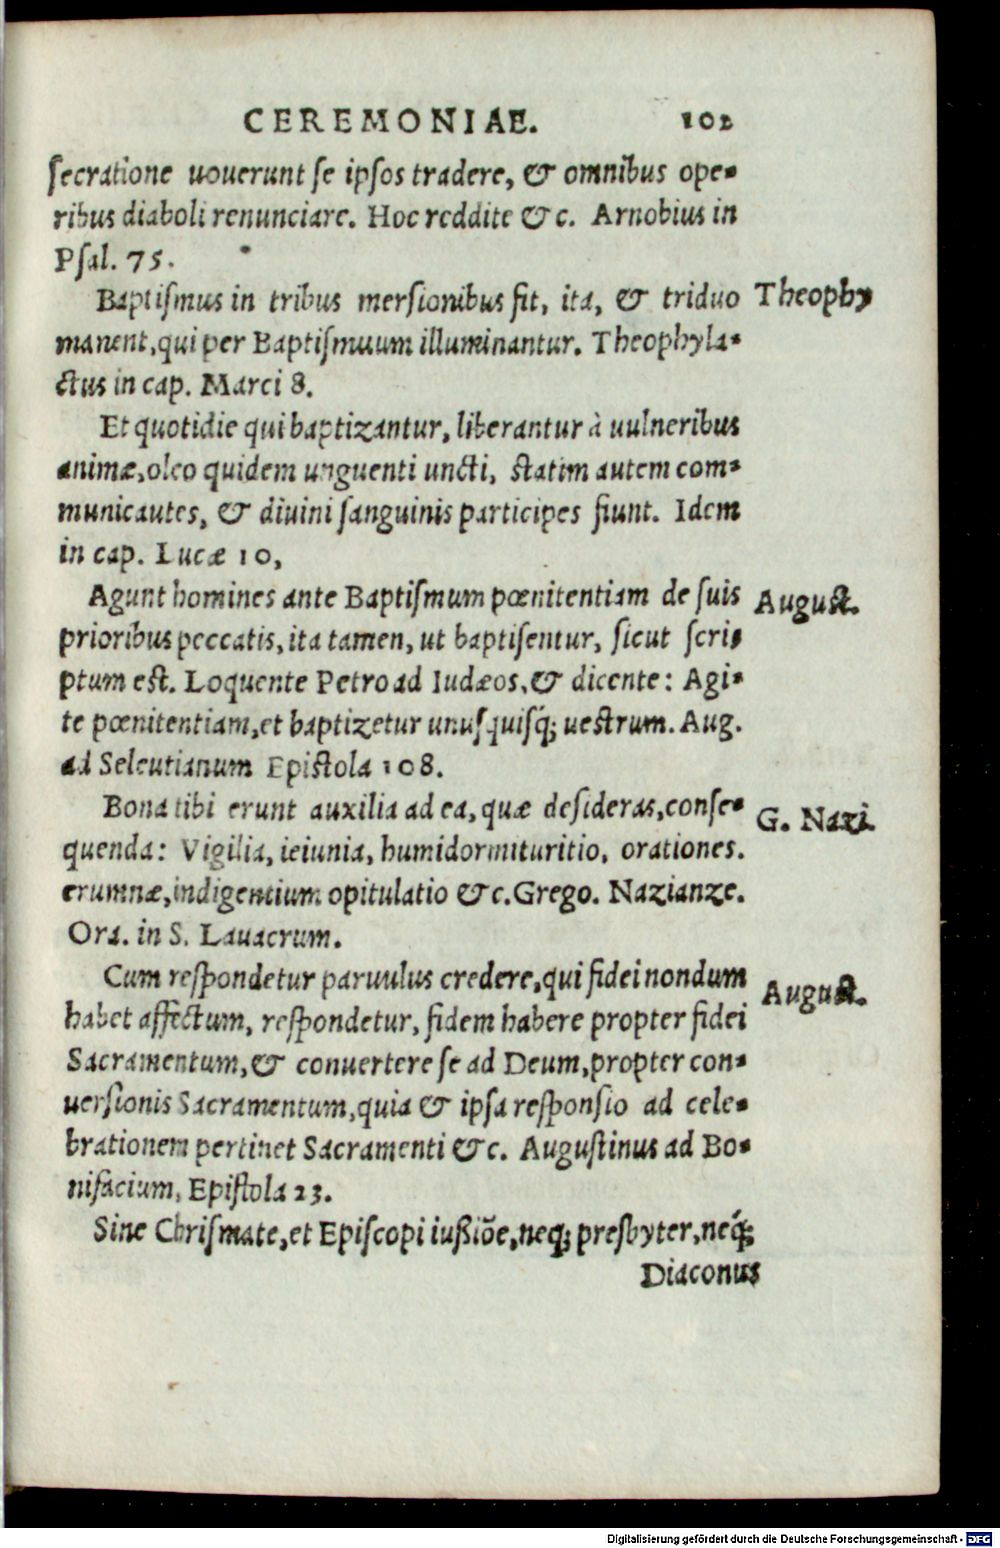 CEREMONIAE. 102
secratione uouerunt se ipsos tradere, & omnibus ope-
ribus diaboli renunciare. Hoc reddite &c. Arnobius in
Psal. 75.
Baptismus in tribus mersionibus fit, ita, & triduo
Theophy
manent, qui per Baptismuum illuminantur. Theophyla-
ctus in cap. Marci 8.
Et quotidie qui baptizantur, liberantur à uulneribus
animæ, oleo quidem unguenti uncti, statim autem com-
municautes, & diuini sanguinis participes fiunt. Idem
in cap. Lucæ 10,
Agunt homines ante Baptismum pœnitentiam de suis
August.
prioribus peccatis, ita tamen, ut baptisentur, sicut scri-
ptum est. Loquente Petro ad Iudæos, & dicente: Agi-
te pœnitentiam, et baptizetur unusquisq́; uestrum. Aug.
ad Seleutianum Epistola 108.
Bona tibi erunt auxilia ad ea, quæ desideras, conse-
G. Nazi.
quenda: Vigilia, ieiunia, humidormituritio, orationes.
erumnæ, indigentium opitulatio &c. Grego. Nazianze.
Ora. in S. Lauacrum.
Cum respondetur paruulus credere, qui fidei nondum
August.
habet affectum, respondetur, fidem habere propter fidei
Sacramentum, & conuertere se ad Deum, propter con-
uersionis Sacramentum, quia & ipsa responsio ad cele-
brationem pertinet Sacramenti &c. Augustinus ad Bo-
nifacium, Epistola 23.
Sine Chrismate, et Episcopi iußiōe, neq; presbyter, neq́;
Diaconus
Digitalisierung gefördert durch die Deutsche Forschungsgemeinschaft - DFG